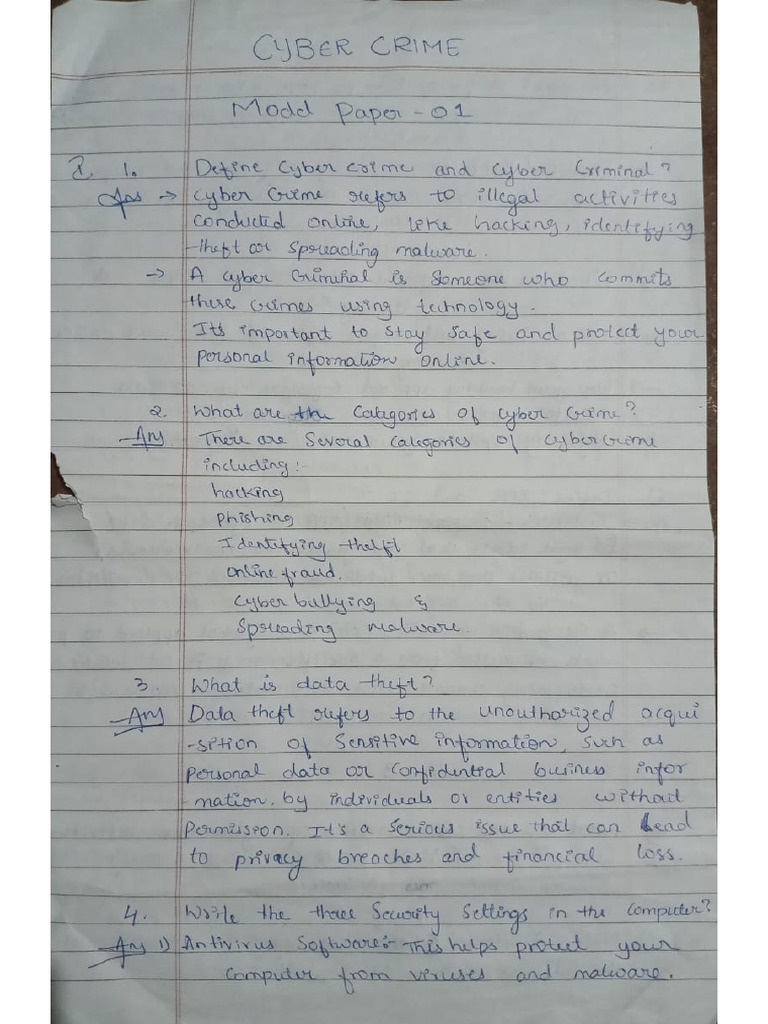 CYBER CRIME
Model Paper - 01
I. 1. Define Cyber crime and Cyber Criminal?
Ans → Cyber Crime refers to illegal activities
conducted online, like hacking, identifying
theft or spreading malware.
→ A cyber Criminal is someone who commits
these crimes using technology.
It's important to stay safe and protect your
personal information online.
2. What are the Categories of cyber Crime?
Ans There are Several categories of cybercrime
including:-
hacking
phishing
Identifying theft
online fraud.
Cyber bullying &
Spreading malware.
3. What is data theft?
Ans Data theft refers to the unoutharized acqui
-sition of Sensitive information, such as
personal data or Confidential business infor
-mation. by individuals or entities without
permission. It's a serious issue that can Lead
to privacy breaches and financial loss.
4. Write the three Security Settings in the Computer?
Ans 1) Antivirus Software:- This helps protect your
Computer from viruses and malware.